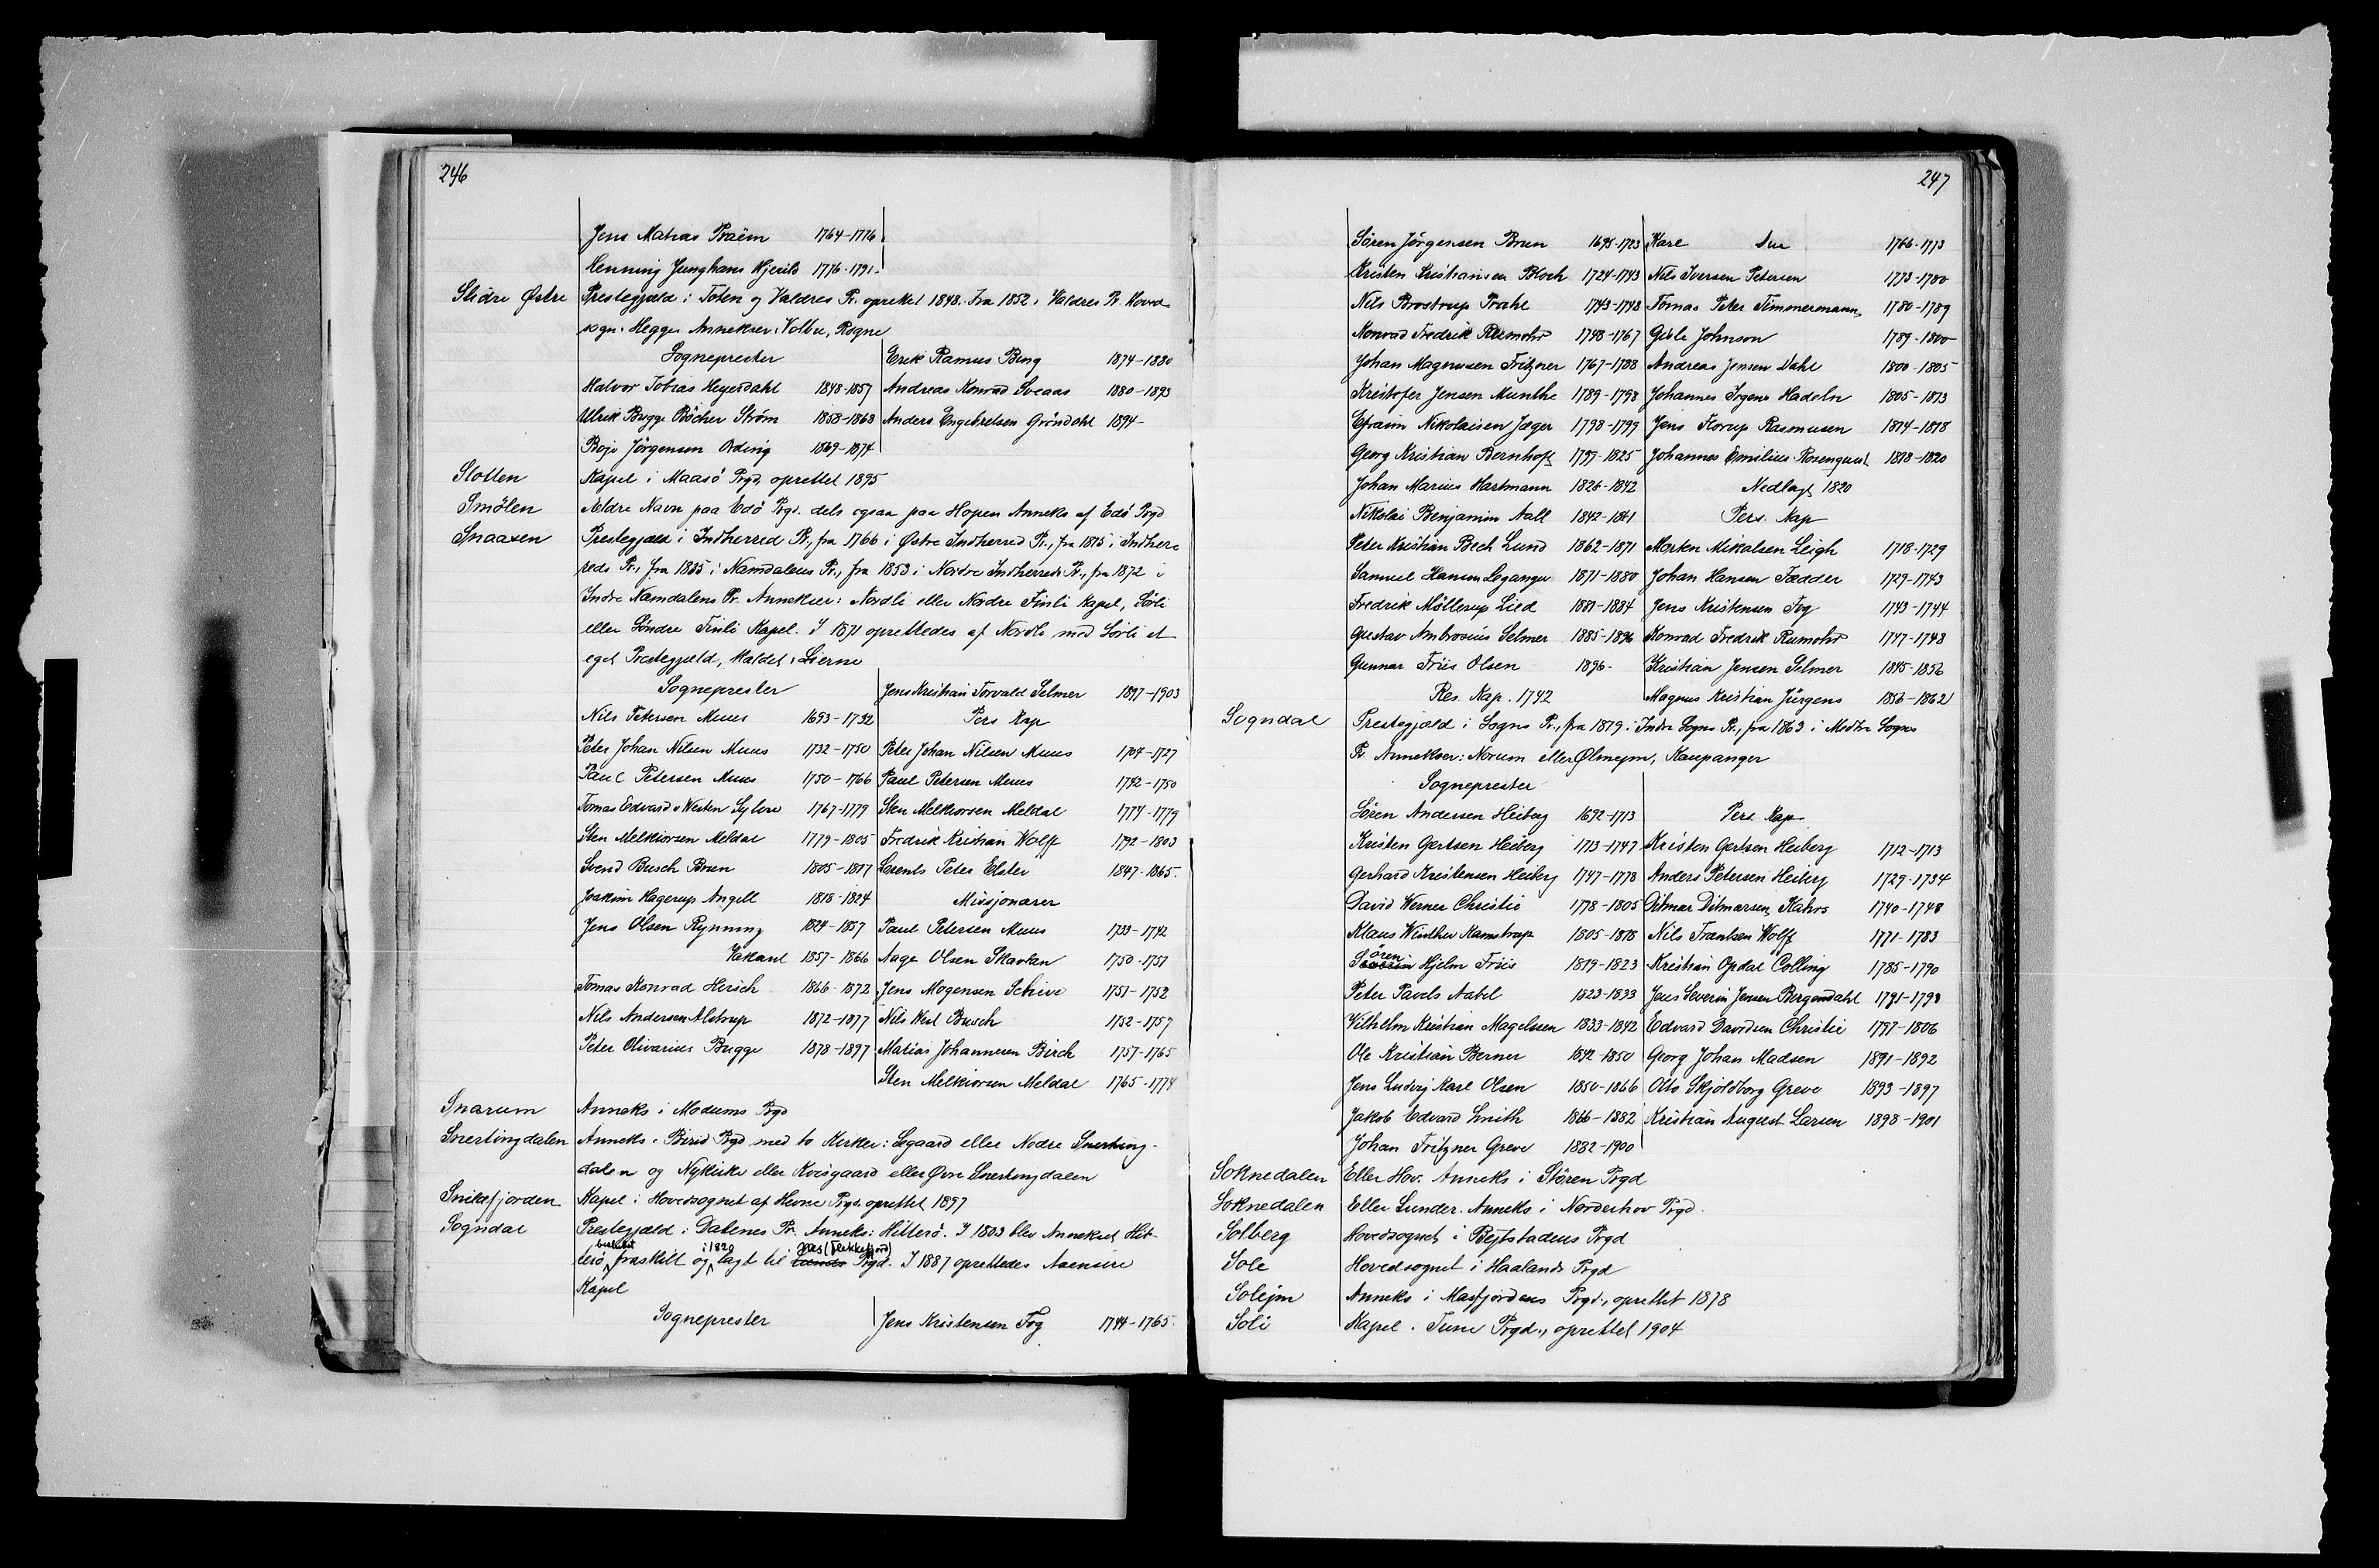 246
Jens Matias Praëm 1764-1776
Henning Junghans Kjerild 1776-1791.
Slidre Østre Prestegjæld i Toten og Valdres Pr. oprettet 1848. Fra 1852 i Valdres Pr. Hoved-
sogn: Hegge Annekser: Volbu, Rogne
Sogneprester Erik Ramus Bing 1874-1880
Halvor Tobias Heyerdahl 1848-1857 Andreas Konrad Sveaas 1880-1893
Ulrik Bugge Böcher Ström 1858-1868 Anders Engebretsen Gröndahl 1894-
Boje Jörgensen Ording 1869-1874
Slotten Kapel i Maasö Pgd, oprettet 1895
Smölen Ældre Navn paa Edö Pgd. dels ogsaa paa Hopen Anneks af Edö Pgd
Snaasen Prestegjæld i Indherred Pr., fra 1766 i Østre Indherred Pr., fra 1815 i Indher-
reds Pr., fra 1835 i Namdalens Pr., fra 1853 i Nordre Indherreds Pr., fra 1872 i
Indre Namdalens Pr. Annekser: Nordli eller Nordre Finli Kapel, Sörli
eller Söndre Finli Kapel. I 1871 oprettedes af Nordli med Sörli et
eget Prestegjæld, kaldet: Lierne
Sogneprester Jens Kristian Torvald Selmer 1897-1903
Nils Petersen Muus 1693-1732 Pers Kap
Peter Johan Nilsen Muus 1732-1750 Peter Johan Nilsen Muus 1704-1727
Paul Petersen Muus 1750-1766 Paul Petersen Muus 1742-1750
Tomas Edvard v Westen Sylow 1767-1779 Sten Melkiorsen Meldal 1774-1779
Sten Melkiorsen Meldal 1779-1805 Fredrik Kristian Wolff 1792-1803
Svend Busch Brun 1805-1817 Lorents Peter Elster 1847-1865.
Joakim Hagerup Angell 1818-1824 Missjonærer
Jens Olsen Rynning 1824-1857 Paul Petersen Muus 1733-1742
Vakant 1857-1866 Aage Olsen Skavlan 1750-1751
Tomas Konrad Hirsch 1866-1872 Jens Mogensen Schive 1751-1752
Nils Andersen Alstrup 1872-1877 Nils West Busch 1752-1757
Peter Olivarius Bugge 1878-1897 Matias Johannesen Birch 1757-1765
Sten Melkiorsen Meldal 1765-1774
Snarum Anneks i Modums Pgd
Snertingdalen Anneks i Birid Pgd med to Kirker: Segaard eller Nedre Snerting-
dalen og Nykirke eller Kvisgaard eller Øvre Snertingdalen
Snikefjorden Kapel i Hovedsognet af Hevne Pgd. oprettet 1897
Sogndal Prestegjæld i Dalenes Pr. Anneks: Hitterö. I 1803 blev Annekset Hit-
terö besluttet fraskilt og i 1820 lagt til Lunds Nes (Flekkefjord) Pgd. I 1887 oprettedes Aaensire
Kapel
Sogneprester Jens Kristensen Fog 1744-1765.
247
Sören Jörgensen Brun 1695-1723 Kare Due 1766-1773
Kristen Kristiansen Bloch 1724-1743 Nils Iversen Petersen 1773-1780
Nils Brostrup Prahl 1743-1748 Tomas Peter Timmermann 1780-1789
Konrad Fredrik Rumohr 1748-1767 Gisle Johnson 1789-1800
Johan Magnussen Fritzner 1767-1788 Andreas Jensen Dahl 1800-1805
Kristofer Jensen Munthe 1789-1798 Johannes Irgens Hadeln 1805-1813
Efraim Nikolaisen Jæger 1798-1799 Jens Storup Rasmusen 1814-1818
Georg Kristian Bernhoft 1799-1825 Johannes Emilius Rosenqvist 1818-1820
Johan Marius Hartmann 1826-1842 Nedlagt 1820
Nikolai Benjamin Aall 1842-1861 Pers. Kap
Peter Kristian Bech Lund 1862-1871 Morten Mikalsen Leigh 1718-1729
Samuel Hansen Leganger 1871-1880 Johan Hansen Fædder 1729-1743
Fredrik Möllerup Lied 1881-1884 Jens Kristensen Fog 1743-1744
Gustav Ambrosius Selmer 1885-1896 Konrad Fredrik Rumohr 1747-1748
Gunnar Friis Olsen 1896- Kristian Jensen Selmer 1845-1856
Res. Kap. 1742 Magnus Kristian Jürgens 1856-1862
Sogndal Prestegjæld i Sogns Pr., fra 1819 i Indre Sogns Pr., fra 1863 i Midtre Sogns
Pr. Annekser: Norum eller Ølmejm, Kaupanger
Sogneprester
Sören Andersen Heiberg 1692-1713 Pers. Kap
Kristen Gertsen Heiberg 1713-1747 Kristen Gertsen Heiberg 1712-1713
Gerhard Kristensen Heiberg 1747-1778 Anders Petersen Heiberg 1729-1734
David Werner Christie 1778-1805 Ditmar Ditmarsen Kahrs 1740-1748
Klaus Winther Kamstrup 1805-1818 Nils Frantsen Wolff 1771-1783
Severin Sören Hjelm Friis 1819-1823 Kristian Opdal Colling 1785-1790
Peter Pavels Aabel 1823-1833 Jens Severin Jensen Bergendahl 1791-1798
Vilhelm Kristian Magelssen 1833-1842 Edvard Davidsen Christie 1797-1806
Ole Kristian Berner 1842-1850 Georg Johan Madsen 1891-1892
Jens Ludvig Karl Olsen 1850-1866 Otto Skjoldborg Greve 1893-1897
Jakob Edvard Smith 1866-1882 Kristian August Larsen 1898-1901
Johan Fritzner Greve 1882-1900
Soknedalen Eller Hov. Anneks i Stören Pgd
Soknedalen Eller Lunder. Anneks i Norderhov Pgd.
Solberg Hovedsognet i Bejtstadens Pgd
Sole Hovedsognet i Haalands Pgd
Solejm Anneks i Masfjordens Pgd., oprettet 1878
Soli Kapel i Tune Pgd., oprettet 1904